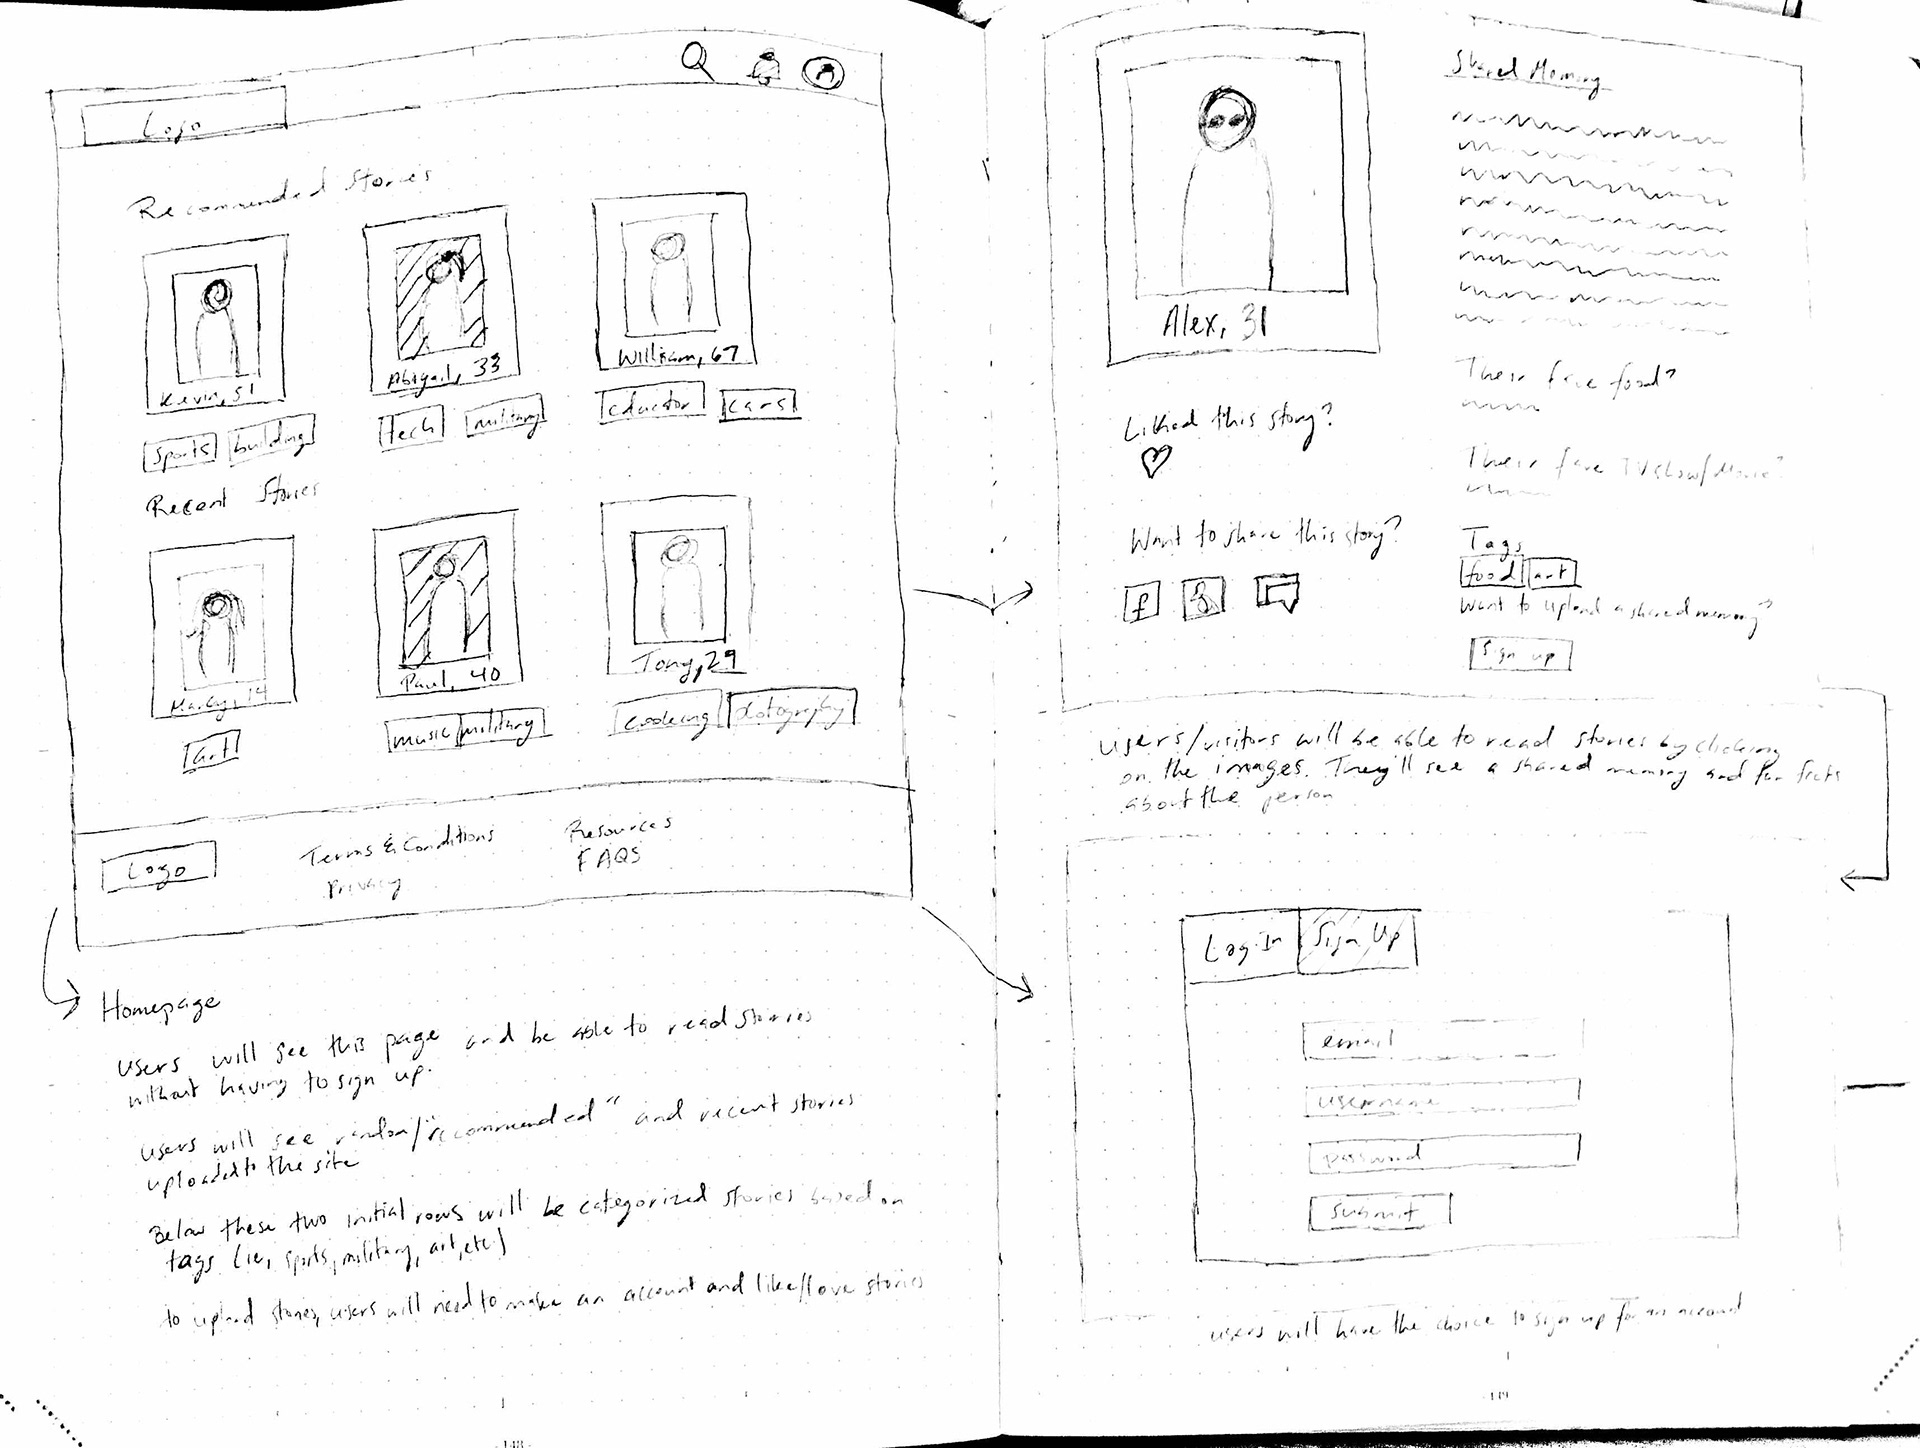 Logo
Recommended Stories
Kevin, 51
Abigail, 33
William, 67
sports building
tech military
eductor cars
Recent Stories
Paul, 40
Tony, 29
art
music military
cooking photography
Logo
Terms & Conditions
Privacy
Resources
FAQS
Homepage
users will see this page and be able to read stories
without having to sign up.
users will see random/"recommended" and recent stories
uploaded to the site
Below these two initial rows will be categorized stories based on
tags (ie, sports, military, art, etc)
to upload stories, users will need to make an account and like/love stories
148
Alex, 31
Shared Memory
Their fave food?
Their fave TV Show/Movie?
Liked this story?
Want to share this story?
f
Tags
food art
Want to upload a shared memory?
Sign up
users/visitors will be able to read stories by clicking
on the images. They'll see a shared memory and fun facts
about the person
Log In Sign Up
email
username
password
submit
users will have the choice to sign up for an account
149